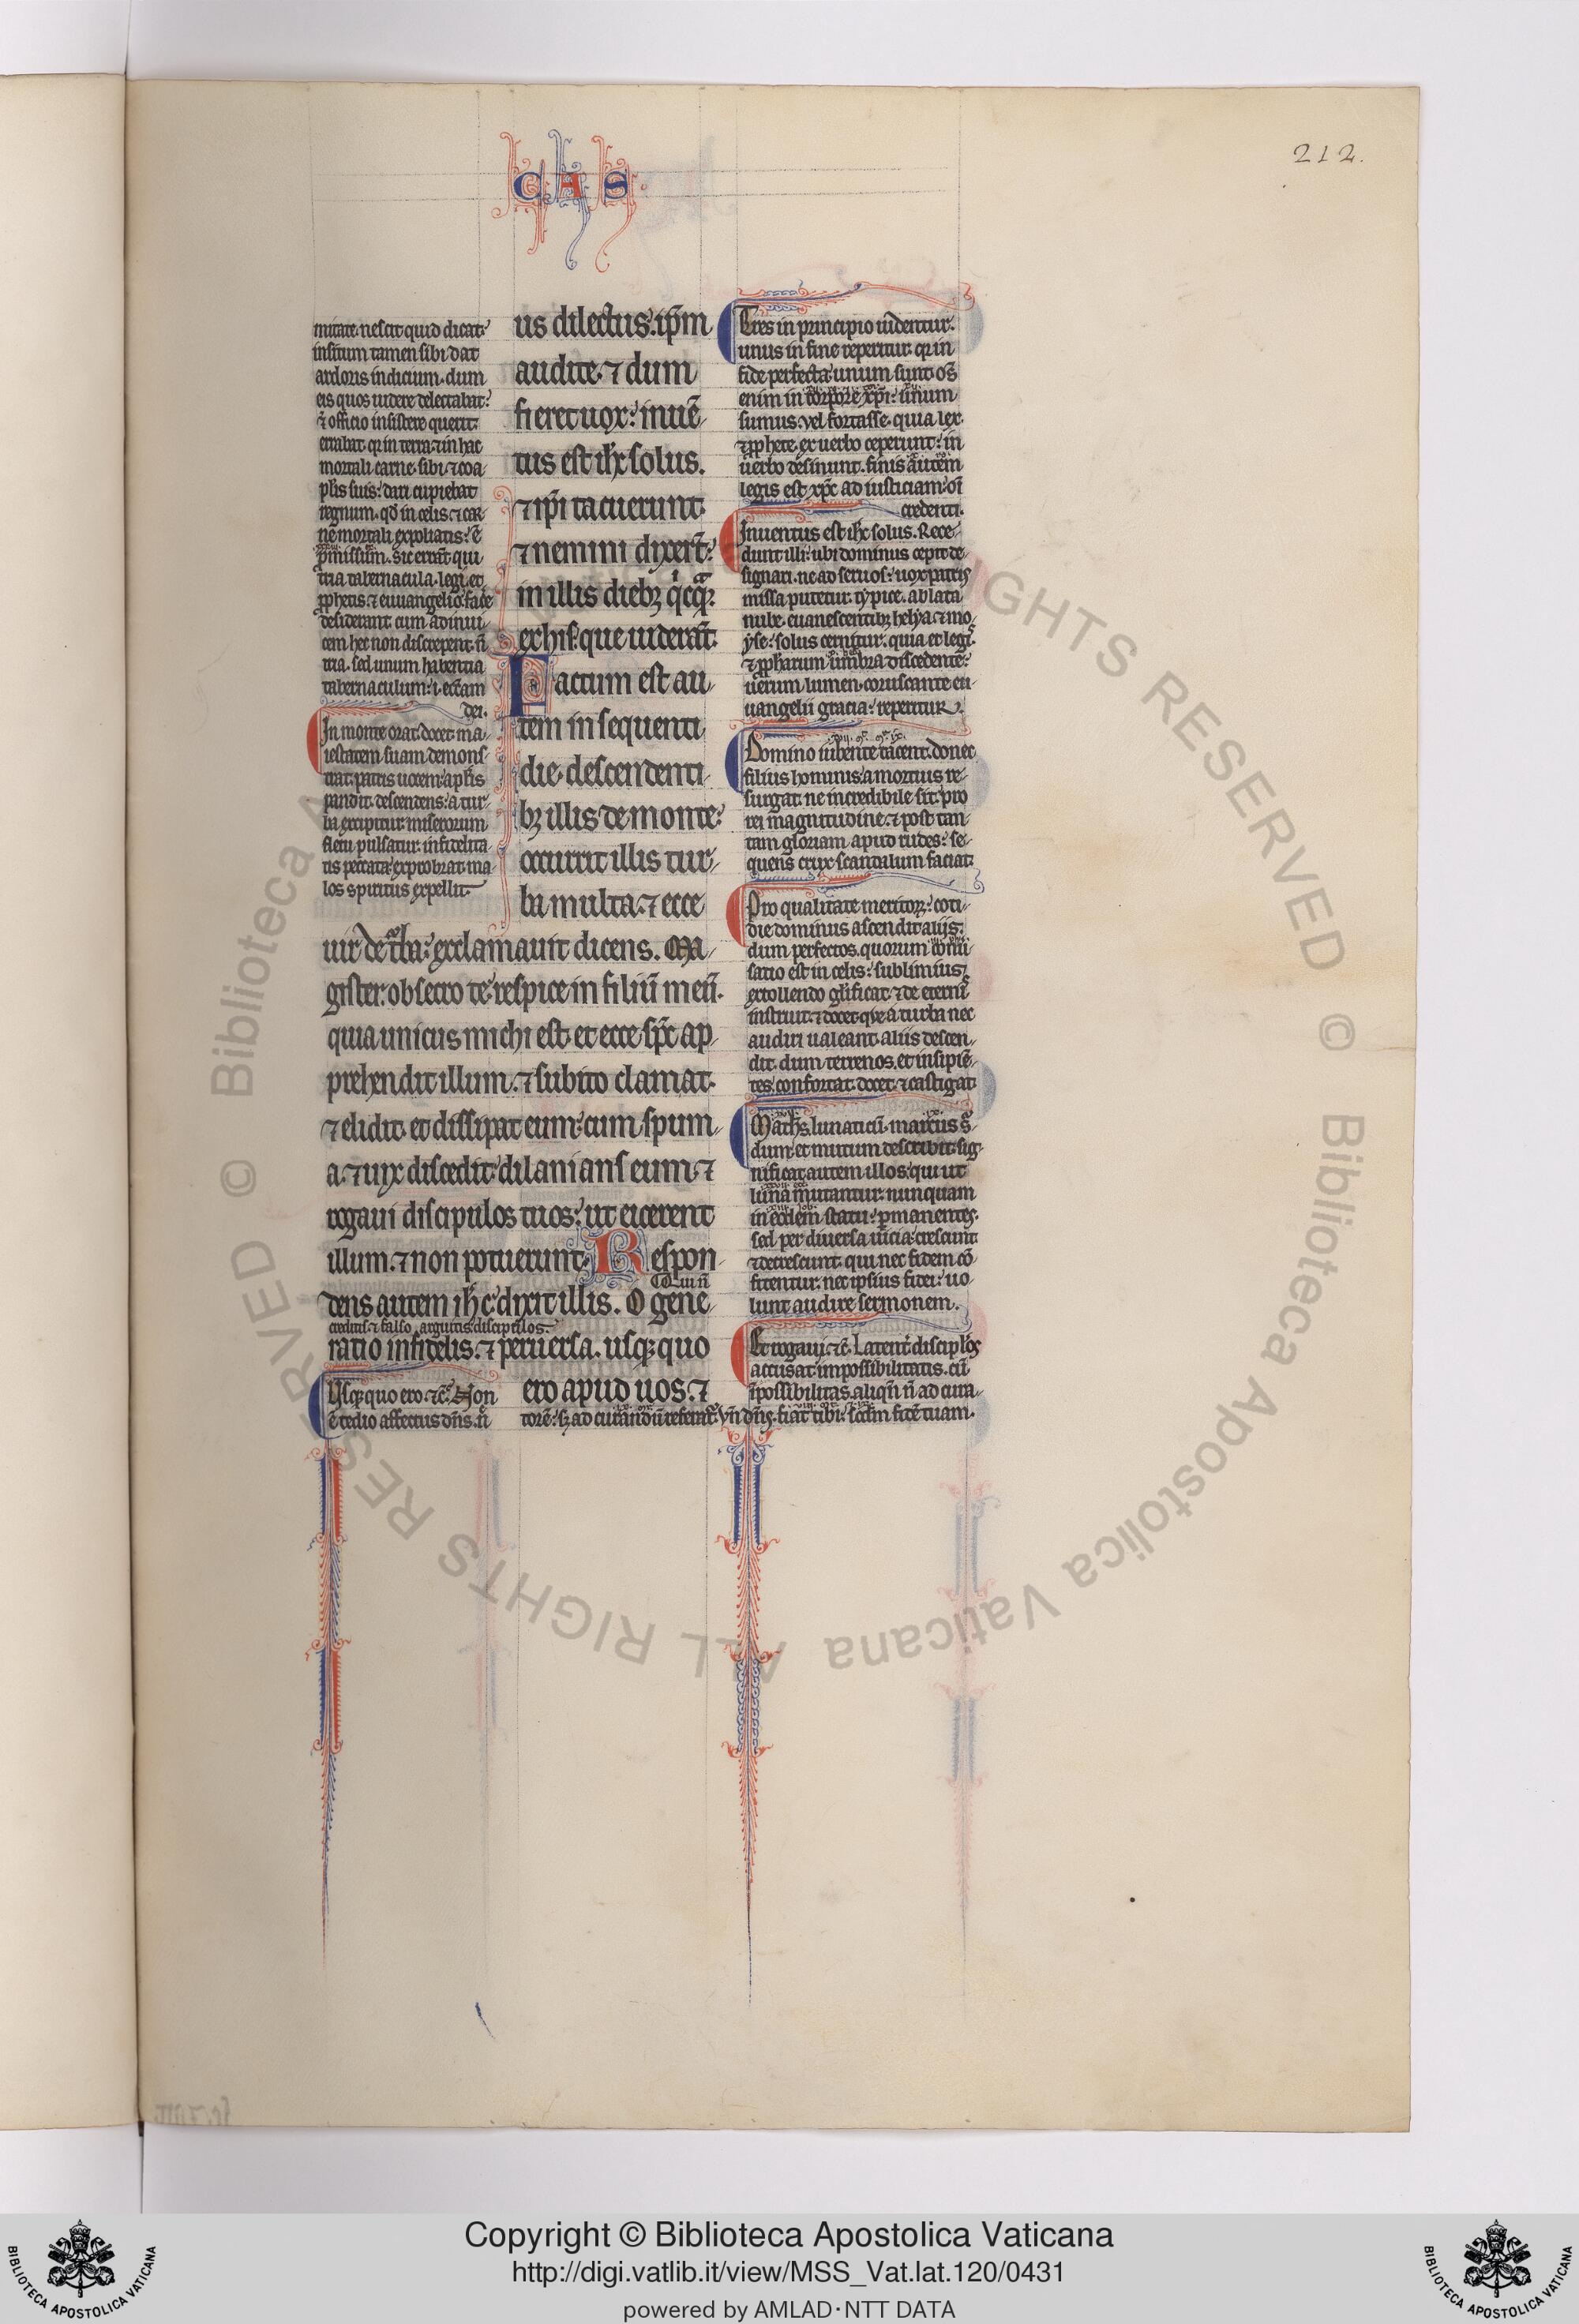 212.
CAS
mitate. nescit quid dicat.
insitum tamen sibi dat
ardoris indicium. dum
eis quos videre delectabat.
⁊ officio insistere querit.
errabat. qr in terra. ⁊ in hac
mortali carne. sibi ⁊ coa-
plis suis. dari cupiebat
regnum. qd in celis. ⁊ car-
ne mortali expoliatis. ē
pmissum. Sic errāt qui
tria tabernacula. legi. et
pphetis. ⁊ euuangelio. face
desiderant cum adinui-
cem hec non discrepent. n̄
tria. sed unum habentia
tabernaculum. i. eccām
dei.
In monte orat. docet. ma-
iestatem suam demons-
trat. patris uocem aplis
pandit. descendens. a tur-
ba excipitur. miserorum
fletu pulsatur. infidelita-
tis peccata exprobrat. ma-
los spiritus expellit.
us dilectus. ip̄m
audite. ⁊ dum
fieret uox. inuē-
tus est ih̄c solus.
⁊ ip̄i tacuerunt
⁊ nemini dixer̄t.
in illis dieb; q̄cq̄.
ex his. que uiderāt.
Factum est au-
tem in sequenti
die. descendenti-
b; illis de monte.
occurrit illis tur-
ba multa. ⁊ ecce
uir de t̄ba. exclamauit dicens. Ma-
gister. obsecro te. respice in filiū meū.
quia unicus michi est. et ecce sp̄c ap-
prehendit illum. ⁊ subito clamat.
⁊ elidit. et dissipat eum. cum spum-
a. ⁊ uix discedit. dilanians eum. ⁊
rogaui discipulos tuos. ut eicerent
illum. ⁊ non potuerunt. Respon
Qui n̄
dens autem ih̄c. dixit illis. O gene-
creditis. ⁊ falso arguitis. discipulos.
ratio infidelis. ⁊ peruersa. usq; quo
ero apud uos. ⁊
Usq; quo ero. ⁊c̄. Non
ē tedio affectus dn̄s. n̄
Tres in principio uidentur.
unus in fine reperitur. qr in
fide perfecta unum sunt. oēs
enim in corpore xp̄i. unum
sumus. vel fortasse. quia lex.
⁊ pphete. ex uerbo ceperunt. in
uerbo desinunt. finis autem
legis est xp̄c ad iusticiam. oi
credenti.
Inuentus est ih̄c solus. Rece-
dunt illi. ubi dominus cepit de-
signari. ne ad seruos. uox patris
missa putetur. typice. ablata
nube. euanescentib; helya. ⁊ mo-
yse. solus cernitur. quia et legis
⁊ pphetarum umbra discedente.
uerum lumen. coruscante eu-
uangelii gracia. reperitur.
Domino iubente tacent. donec
filius hominis a mortuis re-
surgat. ne incredibile sit. pro
rei magnitudine. ⁊ post tan-
tam gloriam. apud rudes. se-
quens crux scandalum faciat.
Pro qualitate meritor. coti-
die dominus ascendit aliis.
dum perfectos. quorum conu-
satio est in celis. sublimius
extollendo glificat. ⁊ de eternis
instruit. ⁊ docet que a turba nec
audiri ualeant. aliis descen-
dit. dum terrenos. et insipiē-
tes. confortat. docet. ⁊ castigat.
Math's. lunaticū. marcus s̄-
dum et mutum describit. sig-
nificat autem illos. qui ut
luna mutantur. nunquam
in eodem statu permanentes.
sed per diuersa uicia crescunt
⁊ decrescunt. qui nec fidem cō-
fitentur. nec ipsius fidei uo-
lunt audire sermonem.
Et rogaui. ⁊c̄. Latenter discip'los
accusat impossibilitatis. cū
īpossibilitas. aliqn̄ n̄ ad cura-
torē. s; ad curandū referat. Vn̄ dn̄s. fiat tibi. sc̄dm fidē tuam.
Copyright © Biblioteca Apostolica Vaticana
http://digi.vatlib.it/view/MSS_Vat.lat.120/0431
powered by AMLAD·NTT DATA
BIBLIOTECA APOSTOLICA VATICANA
BIBLIOTECA APOSTOLICA VATICANA
© Biblioteca Apostolica Vaticana ALL RIGHTS RESERVED
© Biblioteca Apostolica Vaticana ALL RIGHTS RESERVED